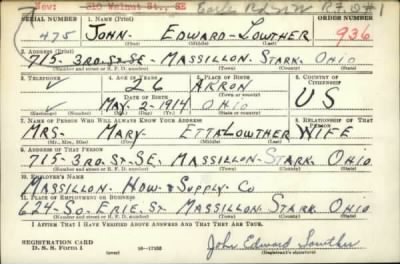 New: 210 Walnut St., SE R.F.D #1
SERIAL NUMBER 1. NAME (Print) ORDER NUMBER
475 JOHN- EDWARD-LOWTHER 936
(First) (Middle) (Last)
2. ADDRESS (Print)
715-3RD-ST-SE- MASSILLON-STARK. OHIO
(Number and street or R. F. D. number) (Town) (County) (State)
3. TELEPHONE 4. AGE IN YEARS 5. PLACE OF BIRTH 6. COUNTRY OF CITIZENSHIP
✓ 26 AKRON
DATE OF BIRTH (Town or county) US
✓ MAY-2-1914 OHIO
(Exchange) (Number) (Mo.) (Day) (Yr.) (State or country)
7. NAME OF PERSON WHO WILL ALWAYS KNOW YOUR ADDRESS 8. RELATIONSHIP OF THAT PERSON
MRS- MARY- ETTA LOWTHER WIFE
(Mr., Mrs., Miss) (First) (Middle) (Last)
9. ADDRESS OF THAT PERSON
715-3RD-ST-SE. MASSILLON-STARK OHIO.
(Number and street or R. F. D. number) (Town) (County) (State)
10. EMPLOYER'S NAME
MASSILLON-HDW & SUPPLY-CO
11. PLACE OF EMPLOYMENT OR BUSINESS
624-SO-ERIE-ST MASSILLON STARK OHIO
(Number and street or R. F. D. number) (Town) (County) (State)
I AFFIRM THAT I HAVE VERIFIED ABOVE ANSWERS AND THAT THEY ARE TRUE.
REGISTRATION CARD
D. S. S. FORM 1 (over) 16-17105 John Edward Lowther
(Registrant's signature)